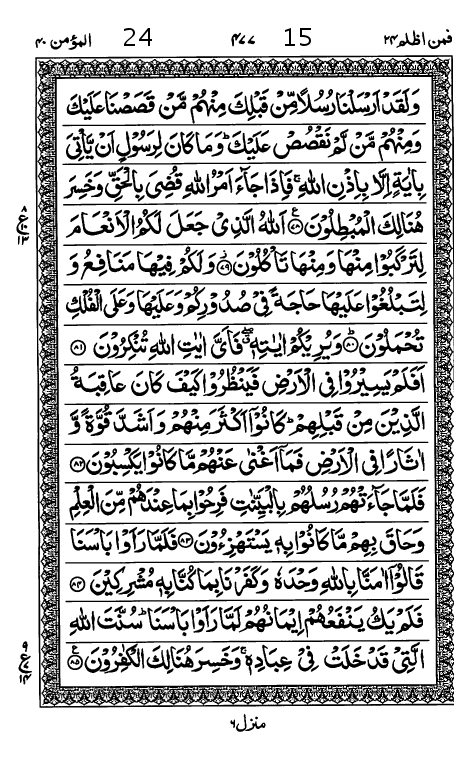 فمن اظلم ٢٤ 15 ٤٧٧ 24 المؤمن ٤٠
وَلَقَدْ اَرْسَلْنَا رُسُلًا مِّنْ قَبْلِكَ مِنْهُمْ مَّنْ قَصَصْنَا عَلَيْكَ
وَمِنْهُمْ مَّنْ لَّمْ نَقْصُصْ عَلَيْكَ ؕ وَمَا كَانَ لِرَسُوْلٍ اَنْ يَّاْتِيَ
بِاٰيَةٍ اِلَّا بِاِذْنِ اللّٰهِ ۚ فَاِذَا جَآءَ اَمْرُ اللّٰهِ قُضِيَ بِالْحَقِّ وَخَسِرَ
هُنَالِكَ الْمُبْطِلُوْنَ ﴿٧٨﴾ ع اَللّٰهُ الَّذِيْ جَعَلَ لَكُمُ الْاَنْعَامَ
لِتَرْكَبُوْا مِنْهَا وَمِنْهَا تَاْكُلُوْنَ ﴿٧٩﴾ وَلَكُمْ فِيْهَا مَنَافِعُ وَ
لِتَبْلُغُوْا عَلَيْهَا حَاجَةً فِيْ صُدُوْرِكُمْ وَعَلَيْهَا وَعَلَى الْفُلْكِ
تُحْمَلُوْنَ ﴿٨٠﴾ وَيُرِيْكُمْ اٰيٰتِهٖ ۖ فَاَيَّ اٰيٰتِ اللّٰهِ تُنْكِرُوْنَ ﴿٨١﴾
اَفَلَمْ يَسِيْرُوْا فِي الْاَرْضِ فَيَنْظُرُوْا كَيْفَ كَانَ عَاقِبَةُ
الَّذِيْنَ مِنْ قَبْلِهِمْ ؕ كَانُوْٓا اَكْثَرَ مِنْهُمْ وَاَشَدَّ قُوَّةً وَّ
اٰثَارًا فِي الْاَرْضِ فَمَآ اَغْنٰى عَنْهُمْ مَّا كَانُوْا يَكْسِبُوْنَ ﴿٨٢﴾
فَلَمَّا جَآءَتْهُمْ رُسُلُهُمْ بِالْبَيِّنٰتِ فَرِحُوْا بِمَا عِنْدَهُمْ مِّنَ الْعِلْمِ
وَحَاقَ بِهِمْ مَّا كَانُوْا بِهٖ يَسْتَهْزِءُوْنَ ﴿٨٣﴾ فَلَمَّا رَاَوْا بَاْسَنَا
قَالُوْٓا اٰمَنَّا بِاللّٰهِ وَحْدَهٗ وَكَفَرْنَا بِمَا كُنَّا بِهٖ مُشْرِكِيْنَ ﴿٨٤﴾
فَلَمْ يَكُ يَنْفَعُهُمْ اِيْمَانُهُمْ لَمَّا رَاَوْا بَاْسَنَا ؕ سُنَّتَ اللّٰهِ
الَّتِيْ قَدْ خَلَتْ فِيْ عِبَادِهٖ ۚ وَخَسِرَ هُنَالِكَ الْكٰفِرُوْنَ ﴿٨٥﴾ ع
منزل ٦